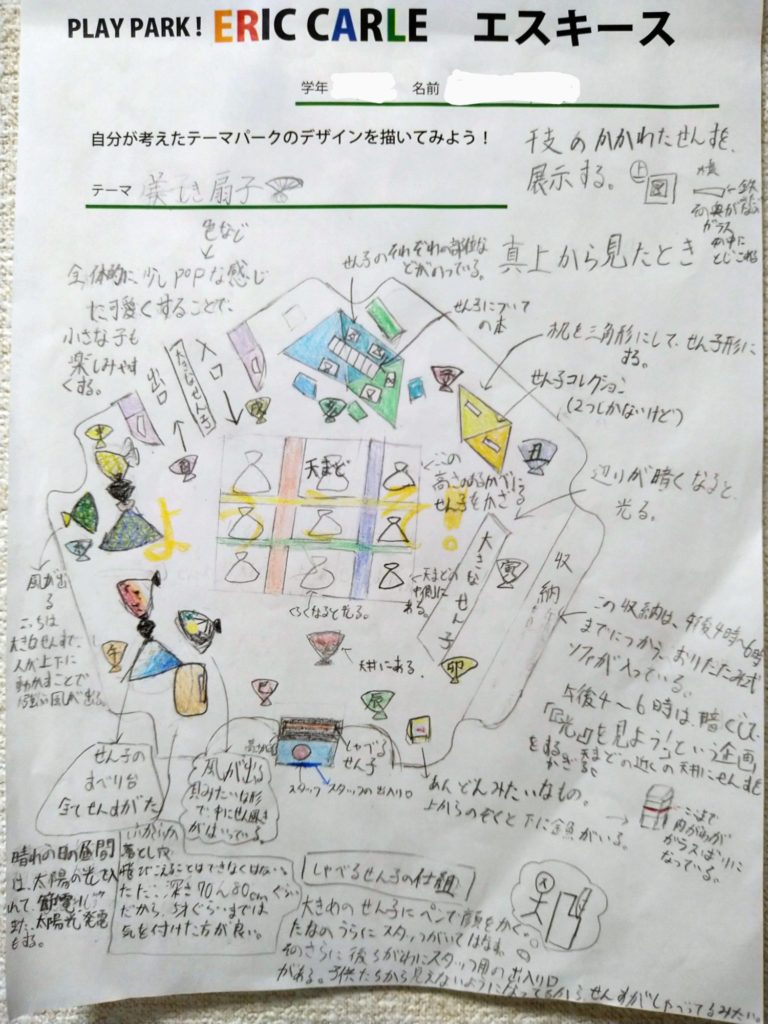 PLAY PARK! ERIC CARLE エスキース
学年
名前
自分が考えたテーマパークのデザインを描いてみよう！
テーマ 美しき扇子
干支のかかわたせんすを、
展示する。
真上から見たとき
色など
全体的に、少しpopな感じ
に可愛くすることで、
小さな子も
楽しみやす
くする。
せん子のそれぞれの部位な
どがのっている。
せん子について
の本
机を三角形にして、せん子形に
する。
せん子コレクション
(2つしかないけど)
入口
出口
大きなせん子
天まど
この
高さのあるかべに
せん子をかざる
辺りが暗くなると、
光る。
丑
寅
卯
辰
巳
午
大きなせん子
収納
天まどの
内側に
ある。
くらくなると光る。
よ
う
そ
！
風が出
る
こっちは
大きなせんすで、
人が上下に
動かすことで
強い風が出る。
天井にある。
この収納は、午後4時〜6時
までにつかう、おりたたみ式
ソファが入っている。
午後4〜6時は、暗くして
「『光』を見よう!」という企画
をする。天まどの近くの天井にせんすを
かざる
せん子の
すべり台
全てせんすがた
風が出る
貝みたいな形
で、中にせん風き
がはいっている。
しゃべる
せん子
スタッフ
スタッフの出入り口
あんどんみたいなもの。
上からのぞくと下に金魚がいる。
ここまで
内がわが
ガラスばりに
なっている。
晴れの日の昼間
は、太陽の光を入
れて、節電!
また、太陽光発電
もする。
落として
飛びこえることはできなくはない。
ただ、深さ70〜80cmぐらい
だから、3才ぐらいまでは
気を付けた方が良い。
しゃべるせん子の仕組
大きめのせん子にペンで顔をかく。
たなのうらにスタッフがいてはなす。
そのさらに後ろがわにスタッフ用の出入り口
がある。子供たちから見えないようになってるからせんすがしゃべってるみたい。